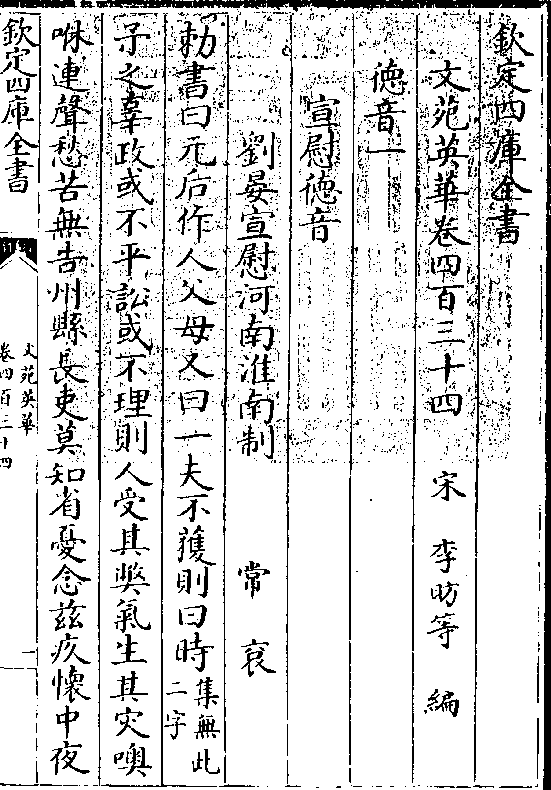 欽定四庫全書
文苑英華卷四百三十四 宋 李昉等 編
德音一
宣慰德音
劉晏宣慰河南淮南制 常衮
勅書曰元后作人父母又曰一夫不獲則曰時集無此二字
予之辜政或不平訟或不理則人受其獘氣生其灾噢
咻連聲愁苦無告州縣長吏莫知省憂念兹疚懷中夜
欽定四庫全書
文苑英華
卷四百三十四
一